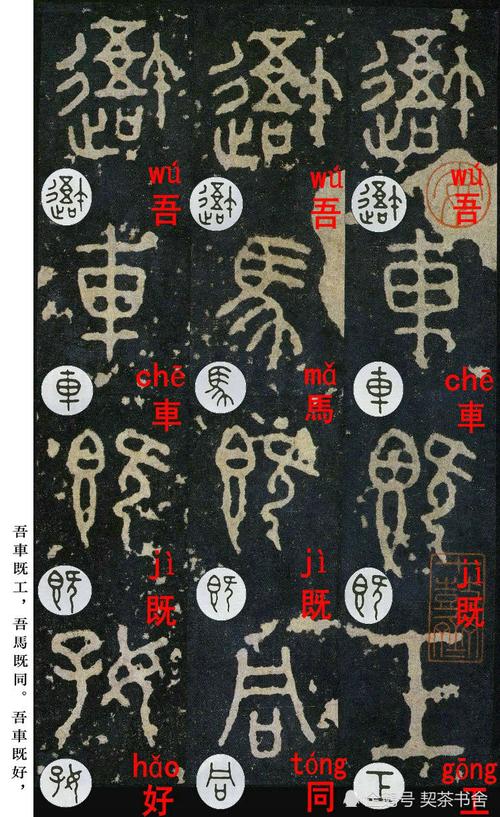 wú
吾
chē
車
jì
既
gōng
工
wú
吾
mǎ
馬
jì
既
tóng
同
wú
吾
chē
車
jì
既
hǎo
好
吾車既工，吾馬既同。吾車既好，
企鹅号 契茶书舍